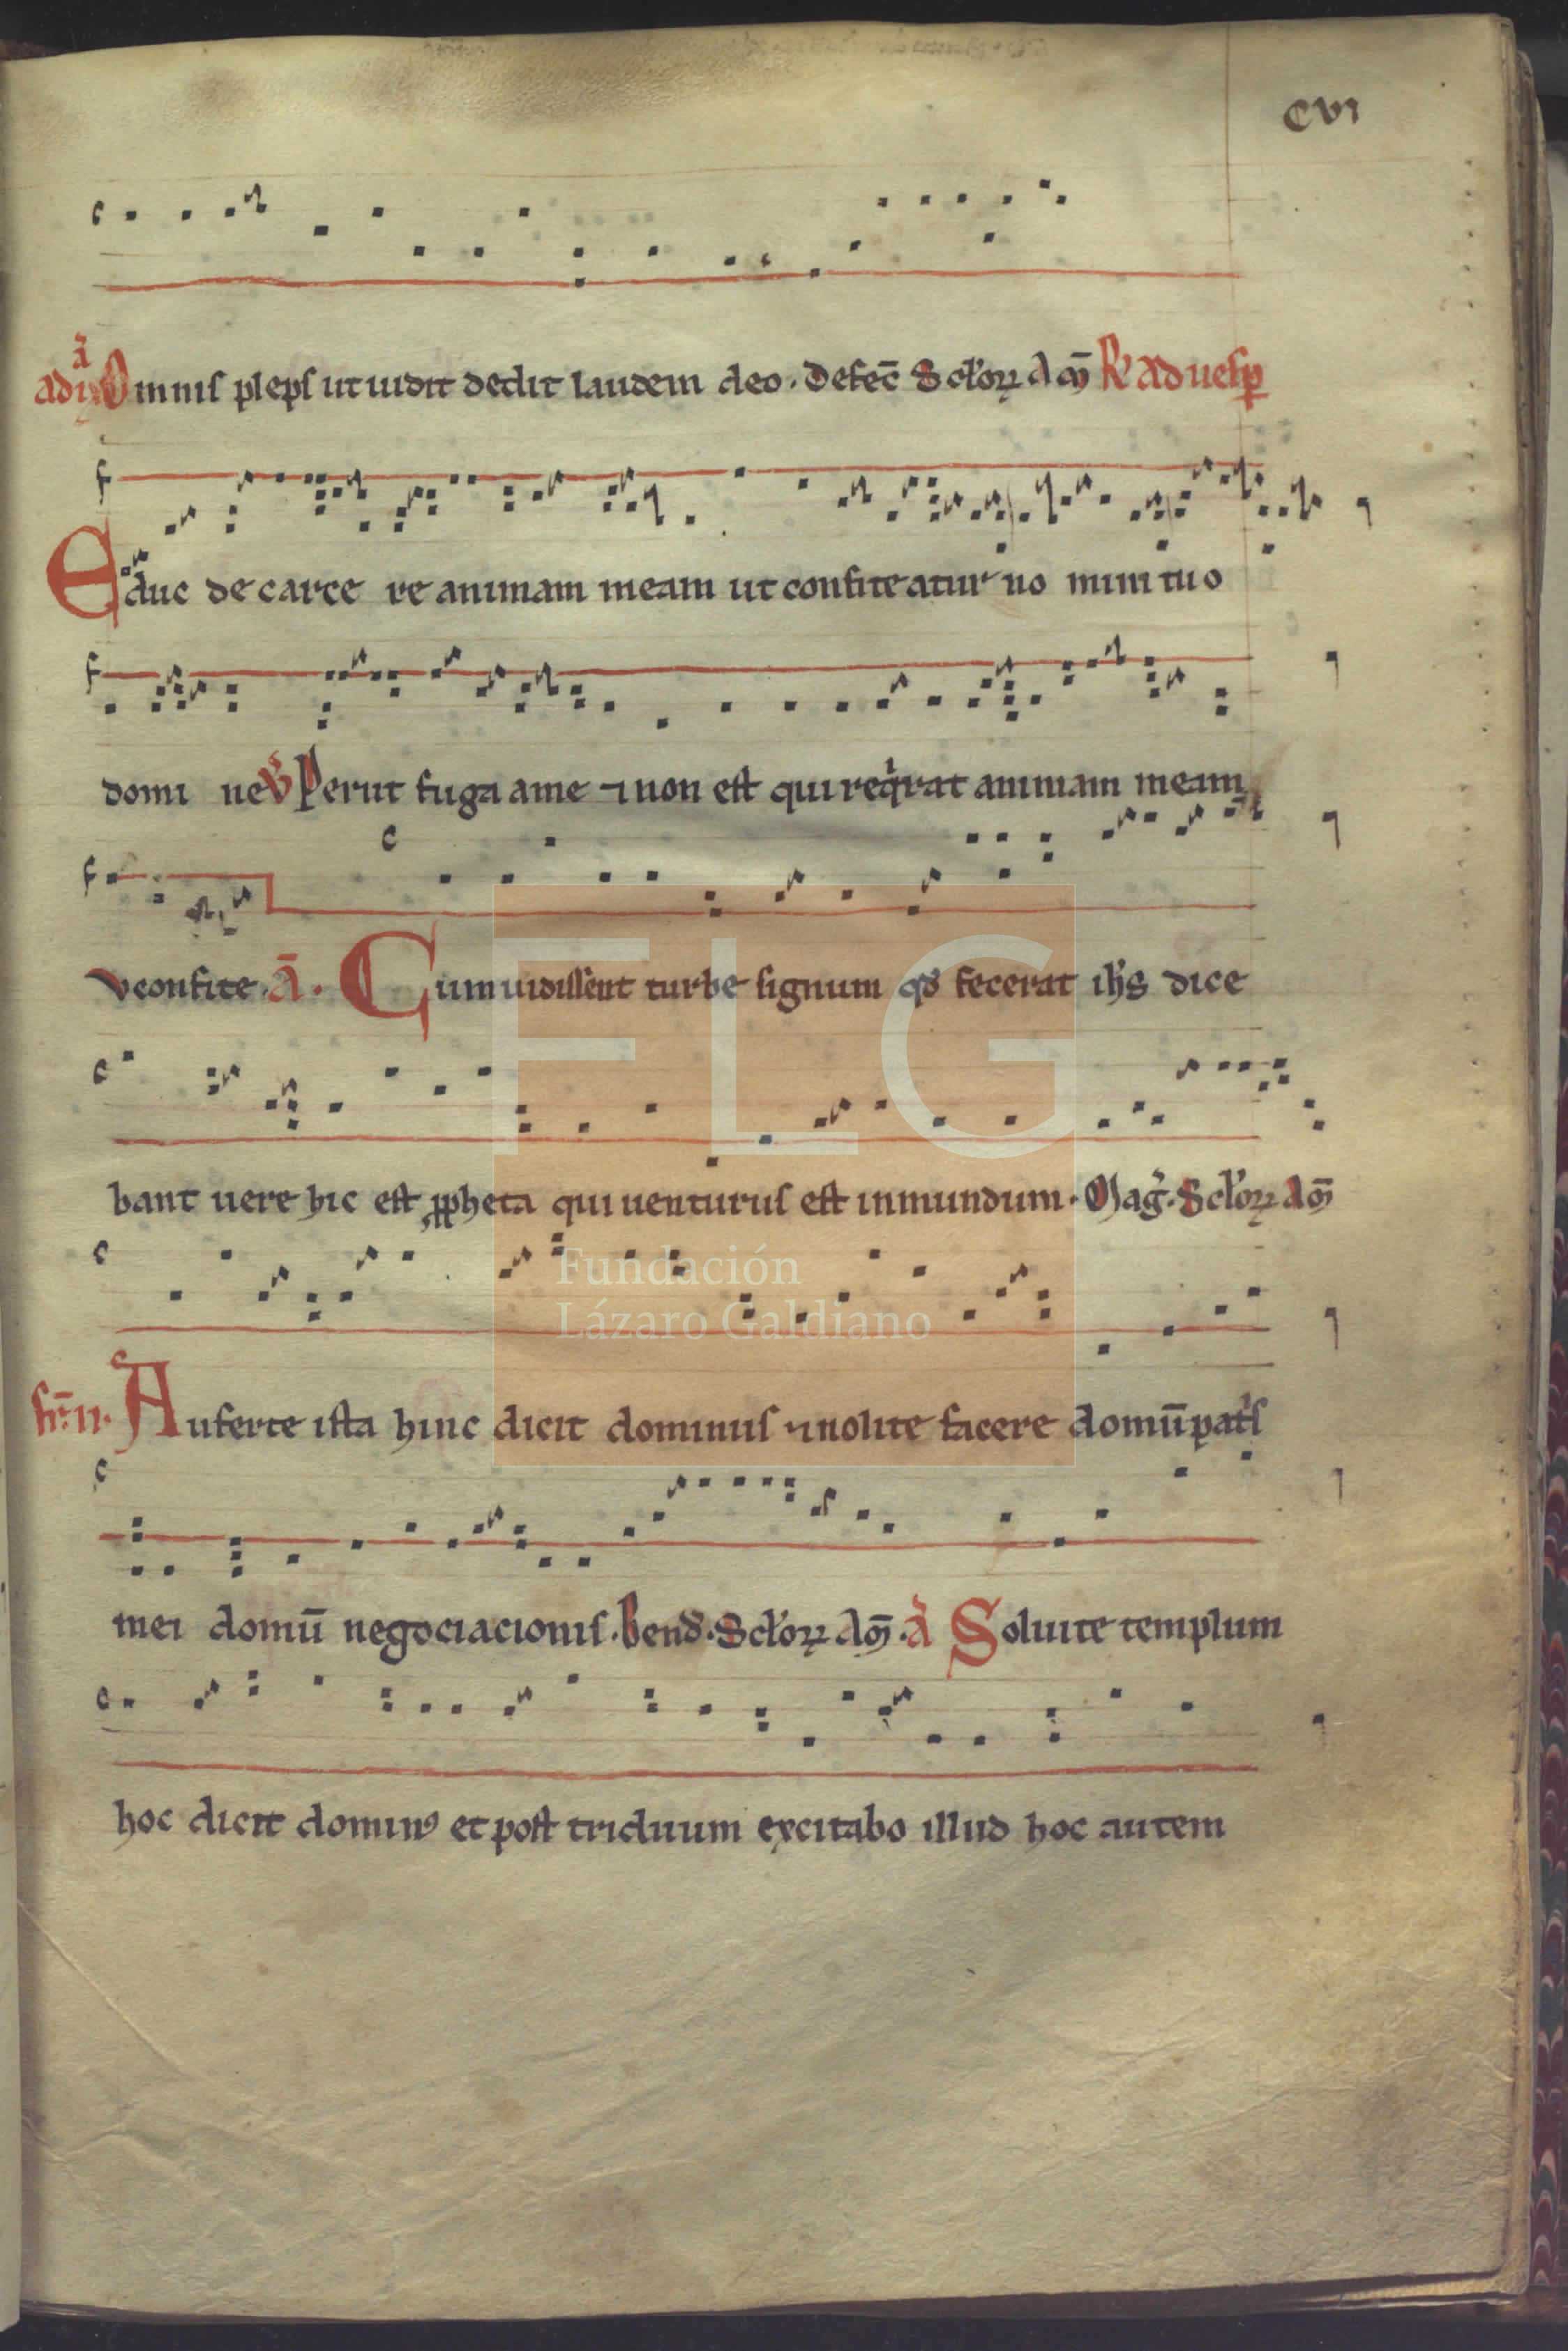 CVI
ā
ad ix Omnis pleps ut uidit dedit laudem deo. Defec̄ Sctōꝝ Am̄ R̃ ad uesp̄
Educ de carcere animam meam ut confiteatur nomini tuo
domine ℣ Periit fuga a me ⁊ non est qui reqͥrat animam meam
Vt confite. Ā. Cum uidissent turbe signum qđ fecerat ih̄s dice
bant uere hic est ꝓpheta qui uenturus est in mundum. Mag̃. Sctōꝝ Am̄
fr̄. ii. Auferte ista hinc dicit dominus ⁊ nolite facere domū patͥs
mei domū negociacionis. Bend̄. Sctōꝝ Am̄. ā Soluite templum
hoc dicit dominꝰ et post triduum excitabo illud hoc autem
FLG
Fundación
Lázaro Galdiano